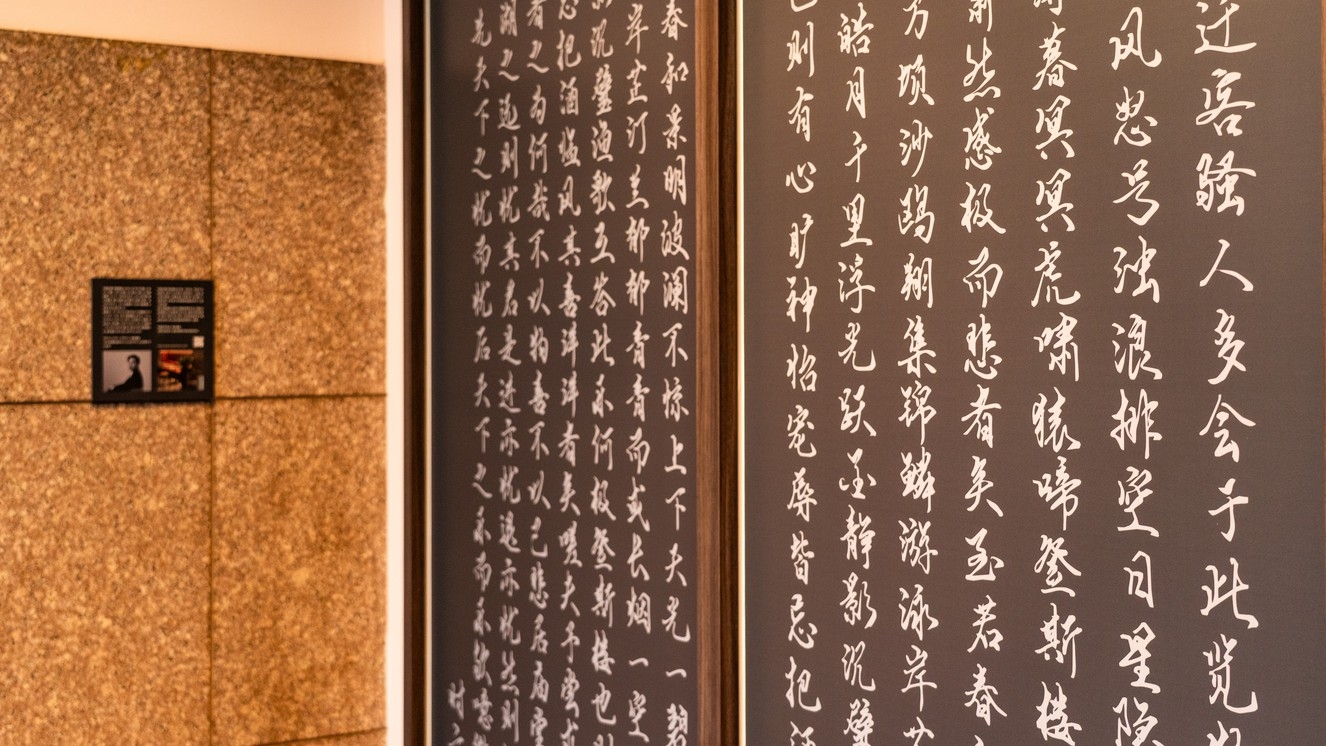 迁客骚人多会于此览
风怒号浊浪排空日星隐
暮冥冥虎啸猿啼登斯楼
然感极而悲者矣至若春
万顷沙鸥翔集锦鳞游泳岸芷
皓月千里浮光跃金静影沉璧
则有心旷神怡宠辱皆忘把酒
春和景明波澜不惊上下天光一碧
岸芷汀兰郁郁青青而或长烟一空
沉璧渔歌互答此乐何极登斯楼也则
忘把酒临风其喜洋洋者矣嗟夫予尝求
者之为何哉不以物喜不以己悲居庙堂
湖之远则忧其君是进亦忧退亦忧然则
先天下之忧而忧后天下之乐而乐欤噫微
时六